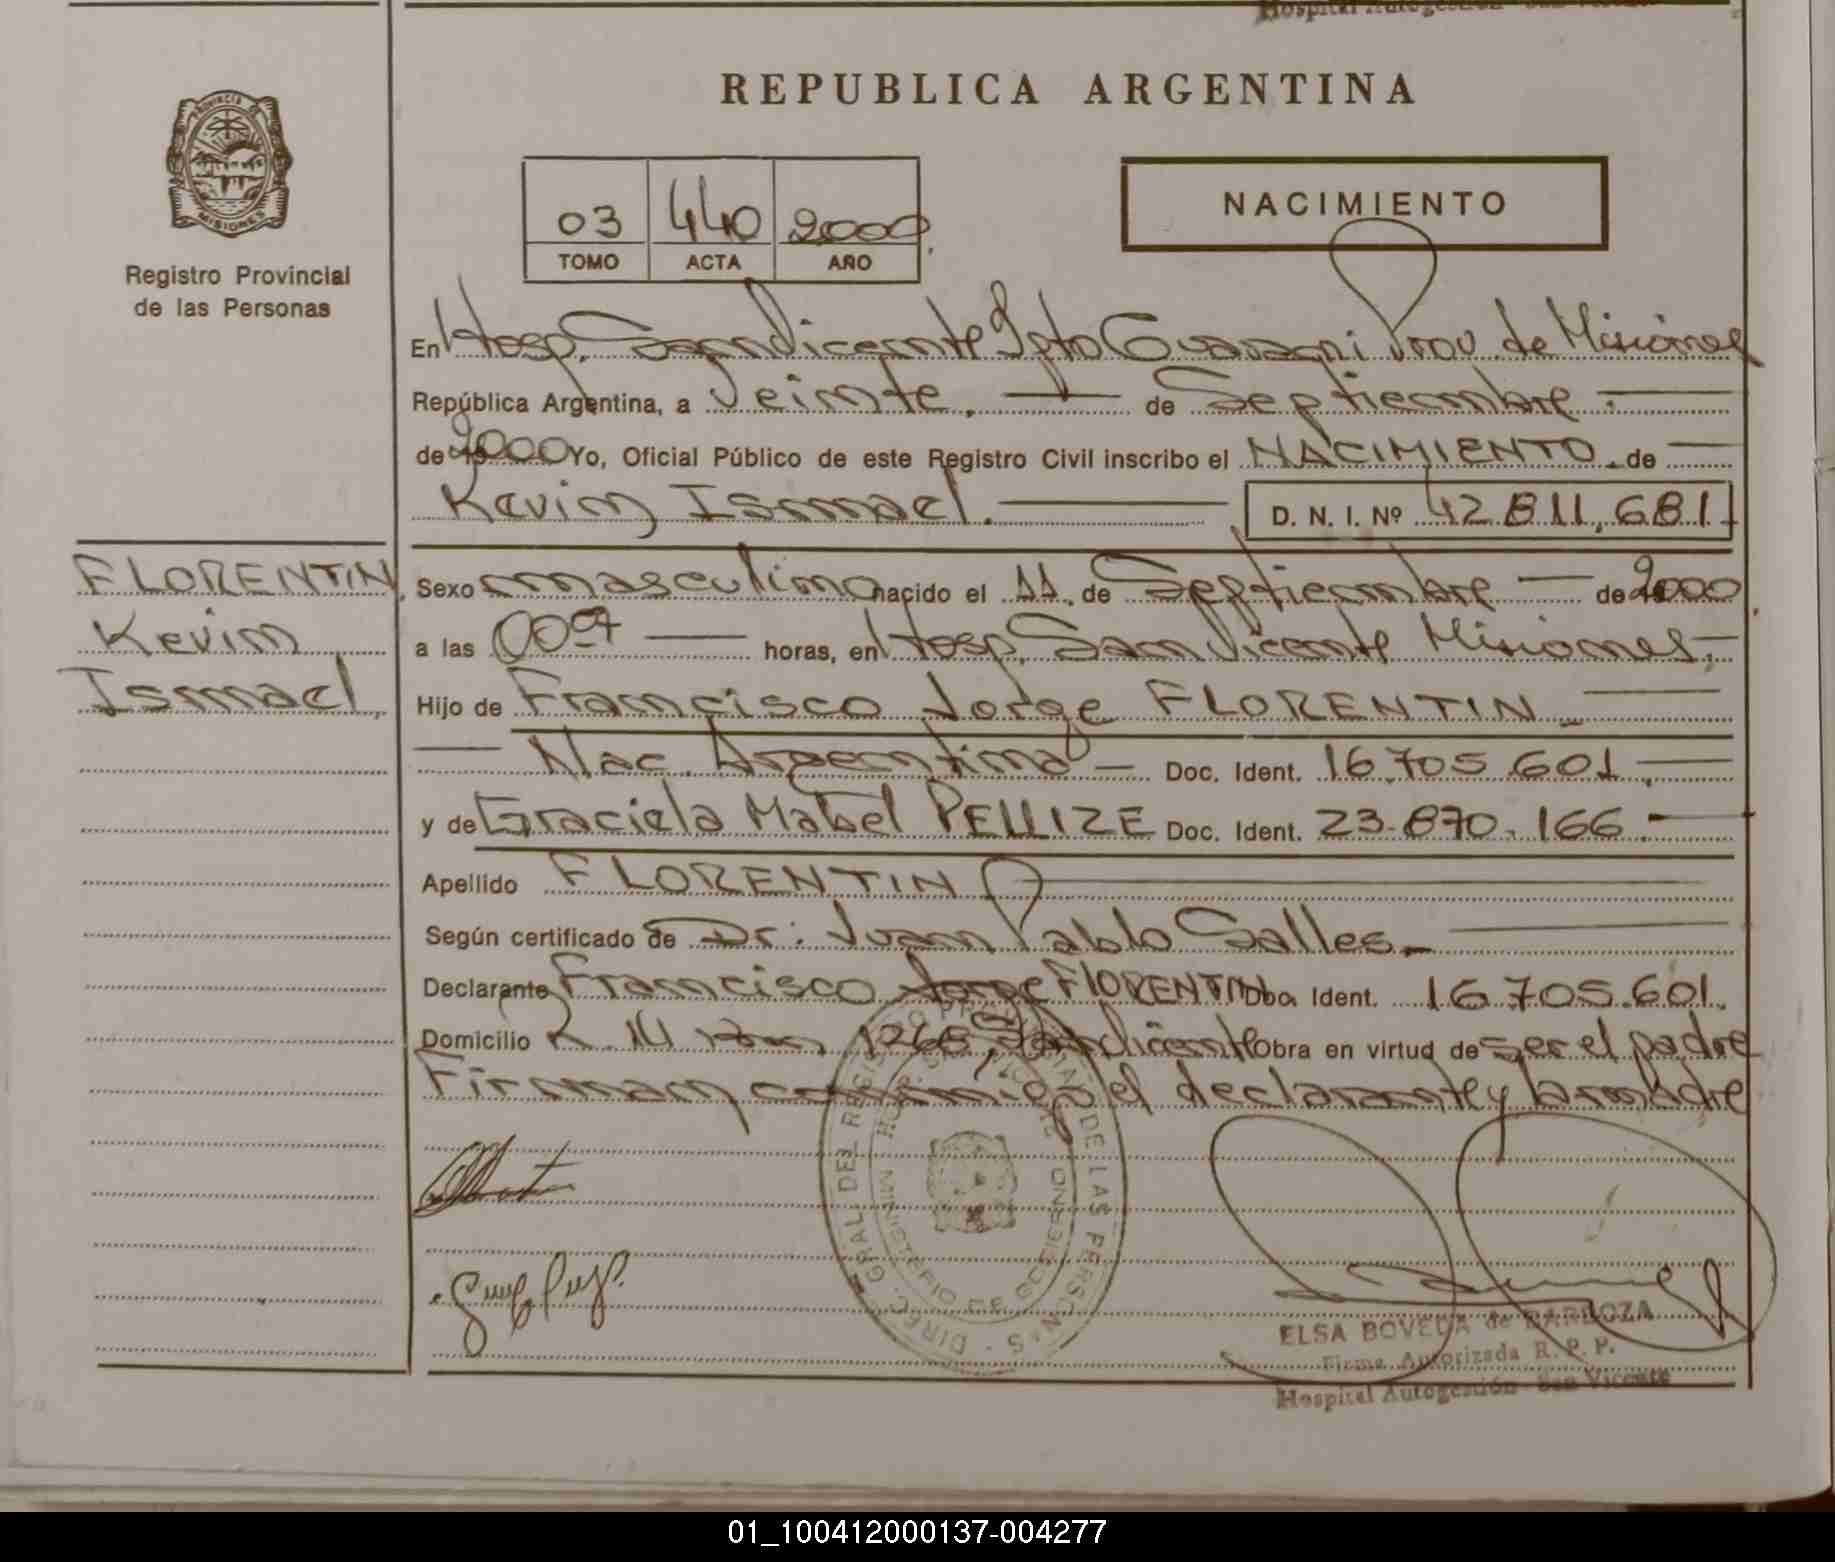 Hospital Autogestión San Vicente
REPUBLICA ARGENTINA
PROVINCIA DE
MISIONES
Registro Provincial
de las Personas
03 440 2000
TOMO ACTA AÑO
NACIMIENTO
En Hosp. San Vicente Dpto Guarani Prov. de Misiones
República Argentina, a Veinte. — de Septiembre. —
de 2000 Yo, Oficial Público de este Registro Civil inscribo el NACIMIENTO. de —
Kevin Ismael. — D. N. I. Nº 42.811.681
FLORENTIN,
Kevin
Ismael
Sexo masculino nacido el 11 de Septiembre — de 2000
a las 00 07 — horas, en Hosp. San Vicente Misiones. —
Hijo de Francisco Jorge FLORENTIN —
— Nac. Argentina — Doc. Ident. 16.705.601. —
y de Graciela Mabel PELLIZE Doc. Ident. 23.870.166. —
Apellido FLORENTIN —
Según certificado de Dr: Juan Pablo Salles. —
Declarante Francisco Jorge FLORENTIN Doc. Ident. 16.705.601.
Domicilio R. 14 Km 1266, San Vicente Obra en virtud de ser el padre
Firman conmigo el declarante y la madre
DIREC. GRAL DEL REGISTRO PROVINCIAL DE LAS PERSONAS
MINISTERIO DE GOBIERNO
HOSP. SAN VICENTE
ELSA BOVEDA de BARBOZA
Firma Autorizada R. P. P.
Hospital Autogestión San Vicente
01_100412000137-004277